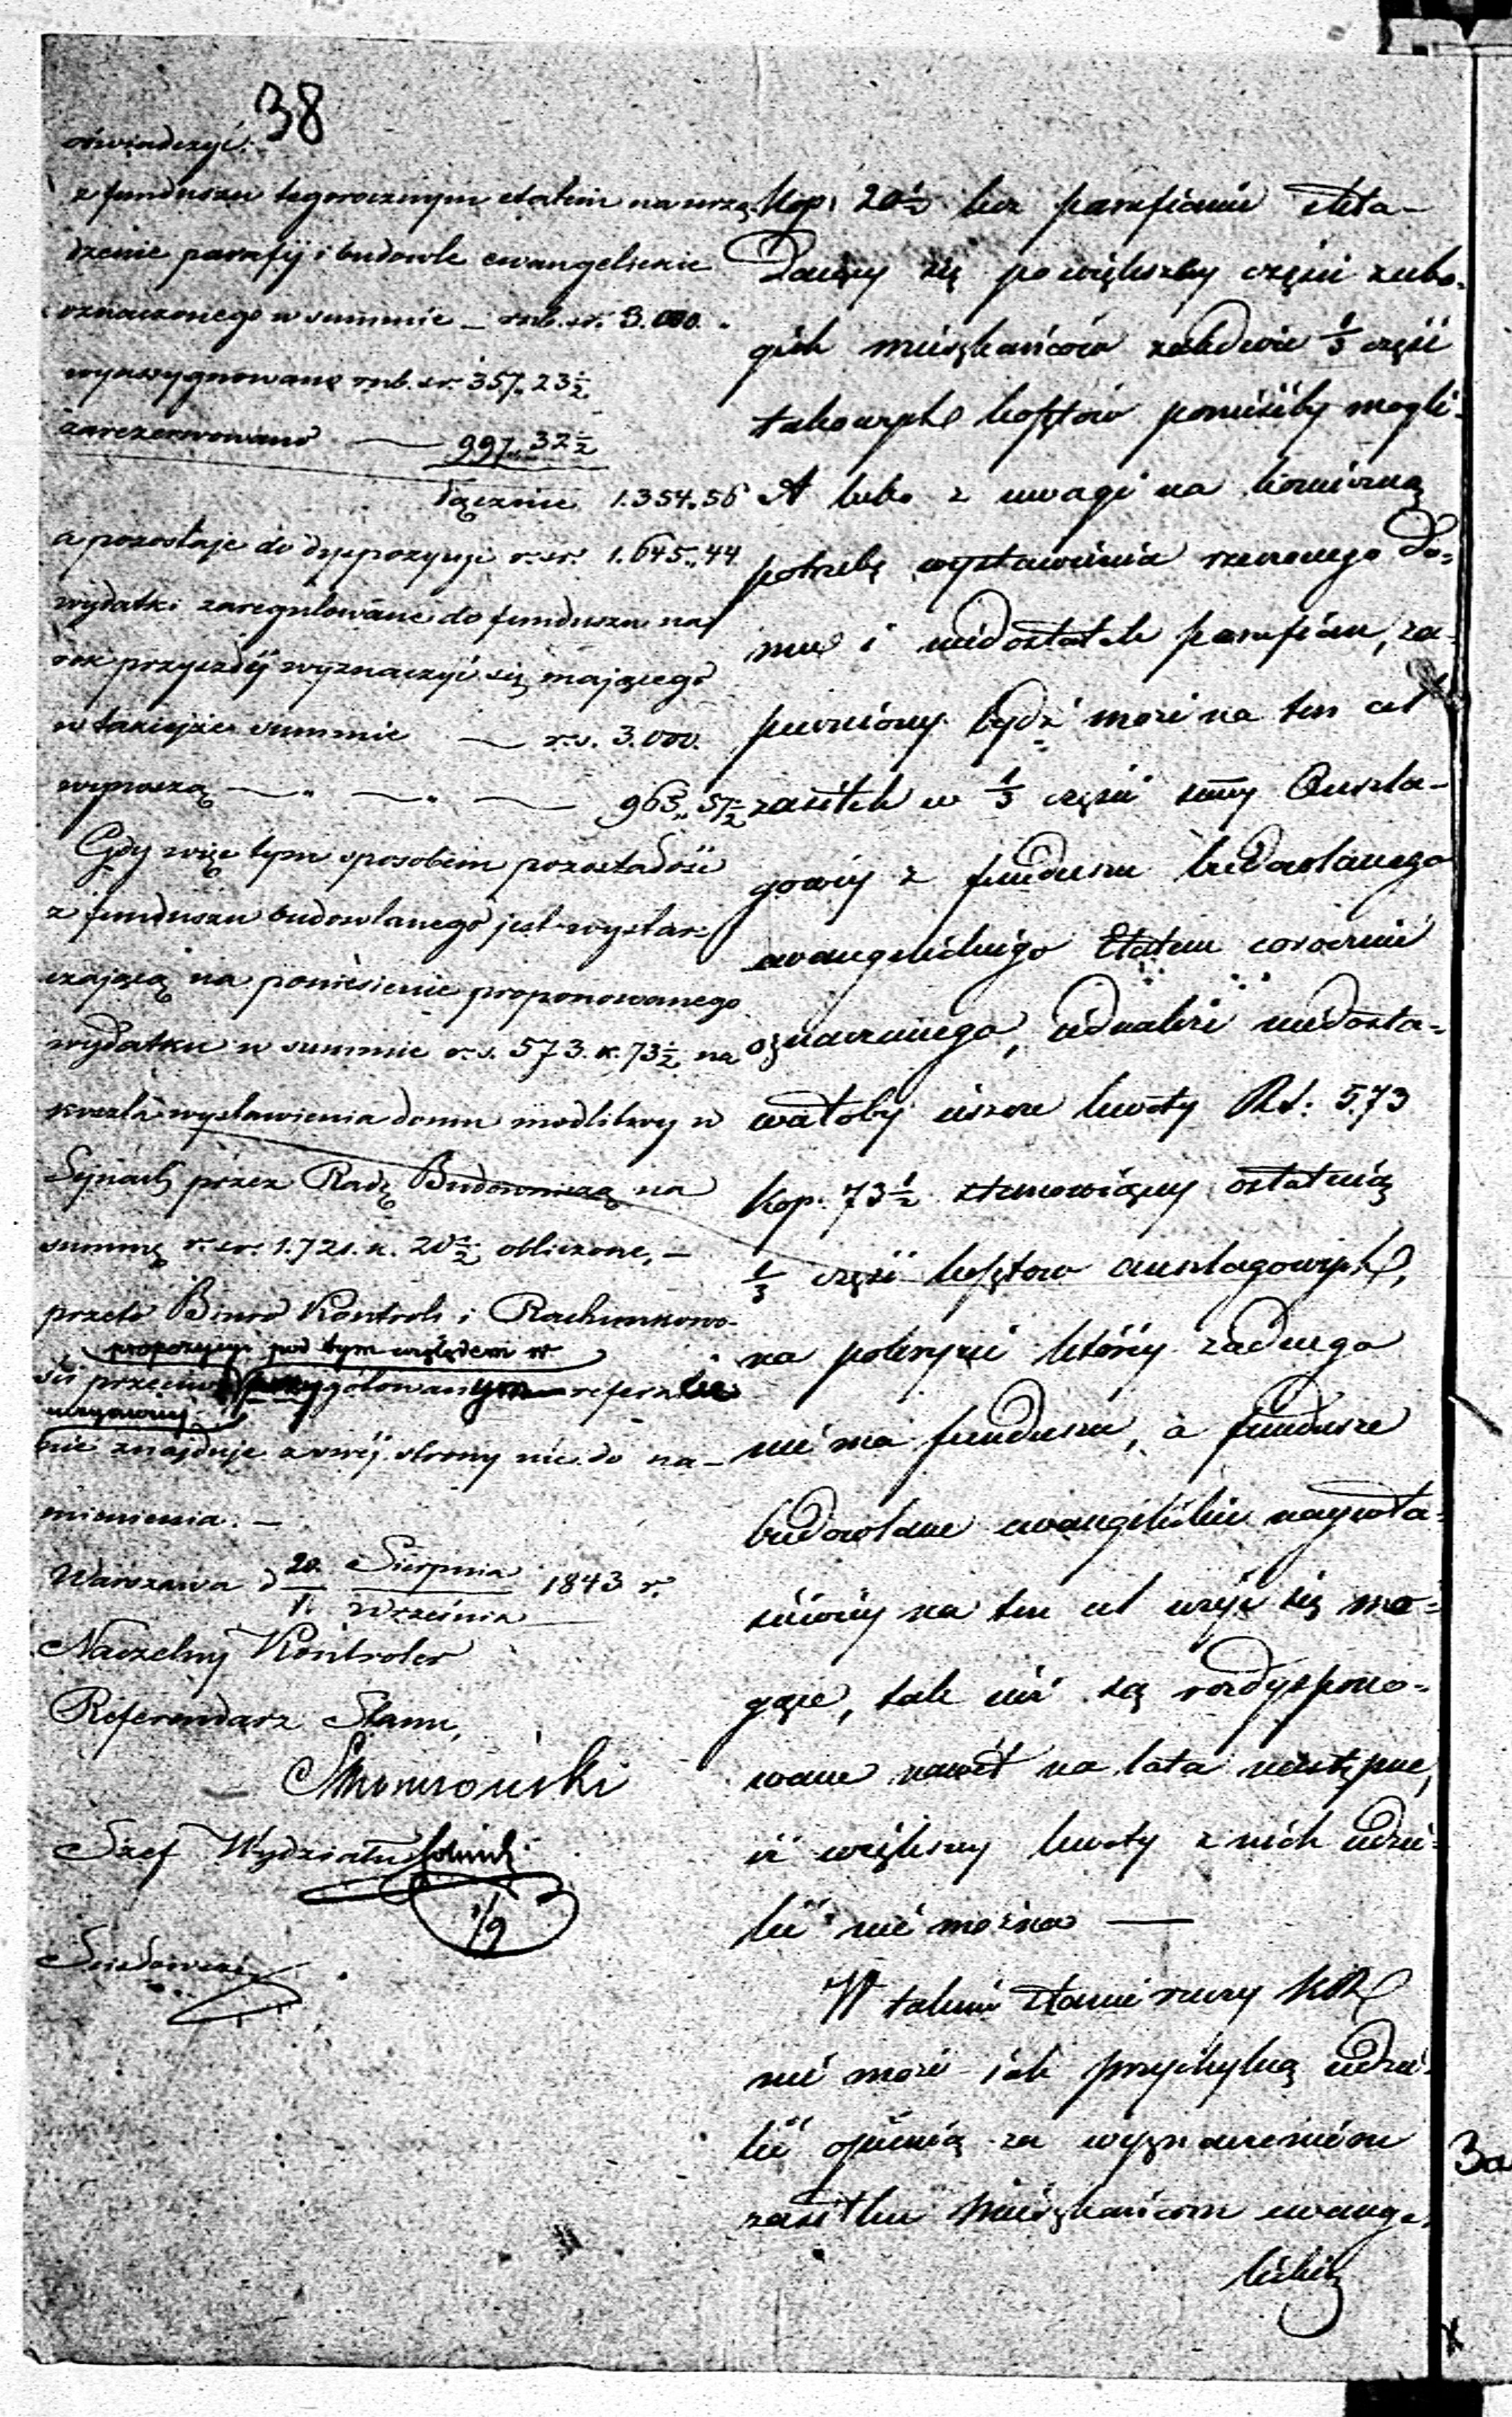 38
oświadczyć:
z funduszu tegorocznym etatem na urzą-
dzenie parafij i budowle ewangelickie
oznaczonego w summie – rub. sr. 3.000.
wyasygnowano rub. sr. 357.23½
zarezerwowano — 997.32½
łącznie 1.354.56
a pozostaje do dyspozycyi r. sr. 1.645.44
wydatki zaregulowane do funduszu na
rok przyszły wyznaczyć się mającego
w takiejże summie — r. s. 3.000.
wynoszą — " — " — 963.57½
Gdy więc tym sposobem pozostałość
z funduszu budowlanego jest wystar-
czającą na poniesienie proponowanego
wydatku w summie r. s. 573. k. 73½ na
koszta wystawienia domu modlitwy w
Sejnach przez Radę Budowniczą na
summę r. sr. 1.721. k. 20½ obliczone, –
przeto Biuro Kontroli i Rachunkowo-
propozycyi pod tym względem w
ści przeciw przygotowanym referacie
uczynionej
nie znajduje z swéj strony nic do na-
mienienia. –
Warszawa d 20. Sierpnia / 1. Września 1843 r.
Naczelny Kontroler
Referendarz Stanu,
Szef Wydziału
1/9
Kop: 20½ lecz parafianie skła-
dający się po większéj części z ubo-
gich mieszkańców zaledwie ⅓ część
takowych kosztów ponieśćby mogli.
A lubo z uwagi na konieczną
potrzebę wystawienia rzeczonego Do-
mu i niedostatek parafian, za-
pewniony bydź może na ten cel
zasiłek w ⅓ części summy Anszla-
gowéj z funduszu budowlanego
ewangelickiego Etatem corocznie
oznaczonego, wszakże niedosta-
wałoby jeszcze kwoty Rs: 573
Kop: 73½ stanowiącéj ostatnią
⅓ część kosztów anszlagowych,
na pokrycie któréj żadnego
nie ma funduszu, a fundusze
budowlane ewangelickie najwła-
ściwiéj na ten cel użyć się mo-
gące, tak już są rozdyspono-
wane nawet na lata następne,
iż większéj kwoty z nich udzie-
lić nie można —
W takim stanie rzeczy KR
nie może jak przychylną udzie-
lić opinię za wyznaczeniem
zasiłku Mieszkańcom ewange-
lickim